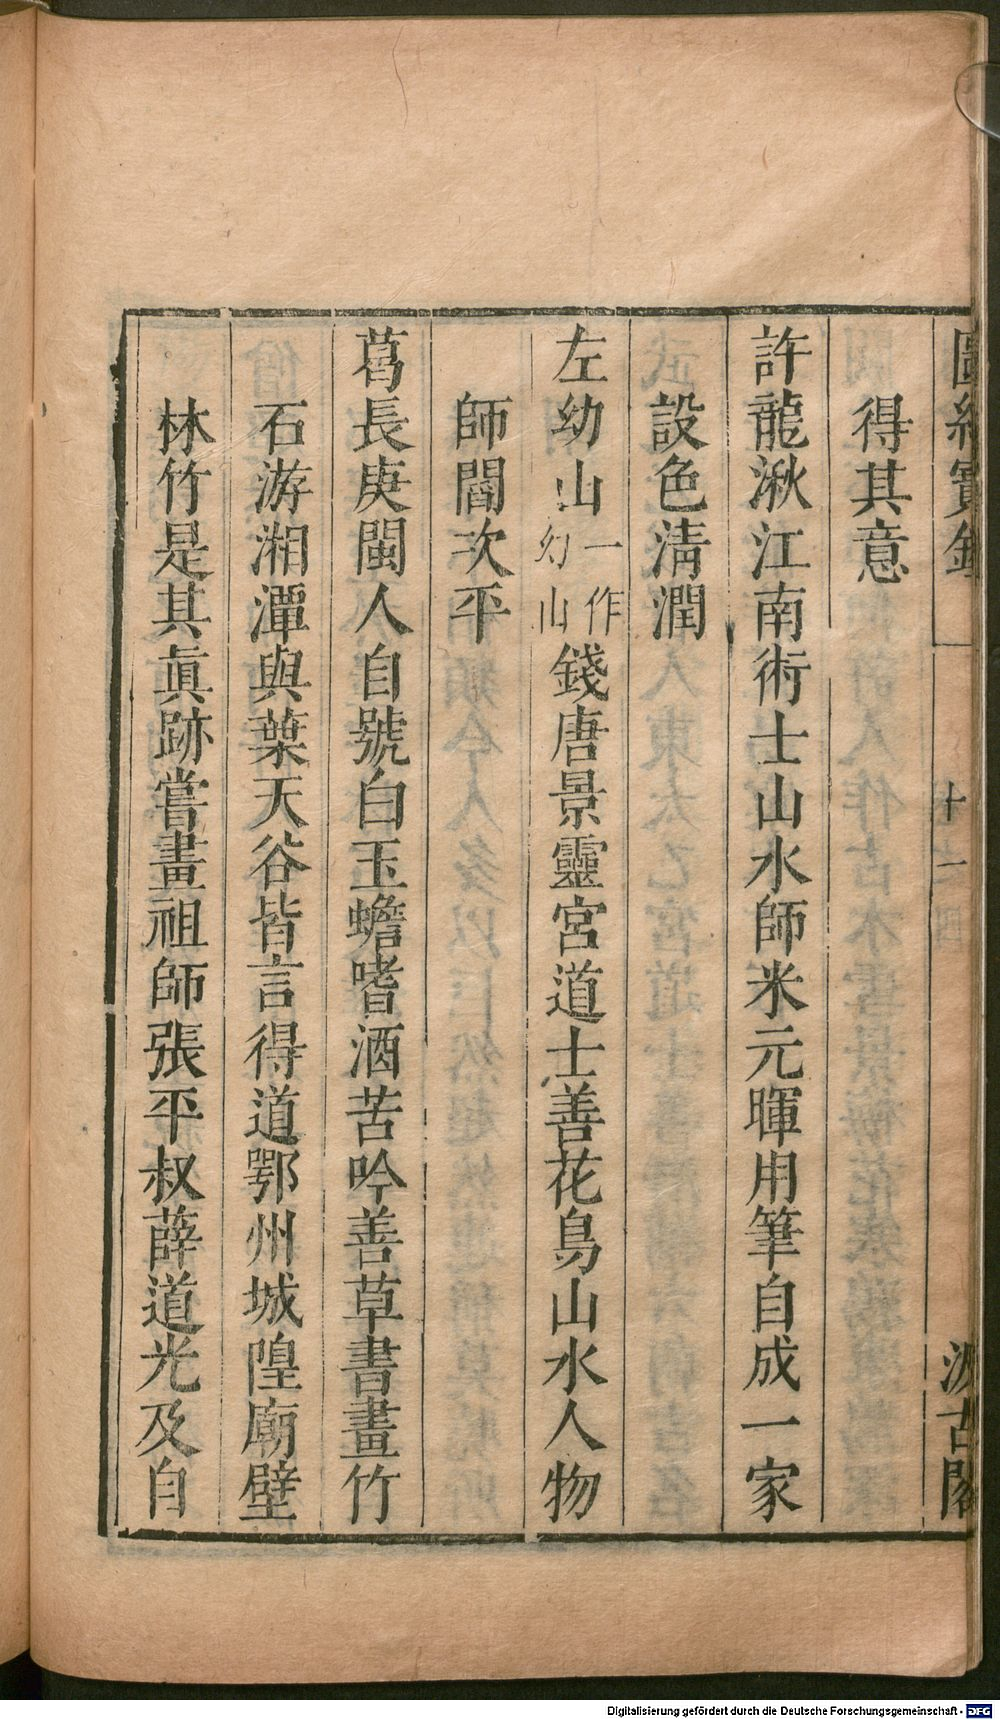 圖繪寶鑑
十一
汲古閣
得其意
許龍湫江南術士山水師米元暉用筆自成一家
設色淸潤
左幼山一作幻山錢唐景靈宮道士善花鳥山水人物
師閻次平
葛長庚閩人自號白玉蟾嗜酒苦吟善草書畫竹
石游湘潭與葉天谷皆言得道鄂州城隍廟壁
林竹是其眞跡嘗畫祖師張平叔薛道光及自
Digitalisierung gefördert durch die Deutsche Forschungsgemeinschaft - DFG